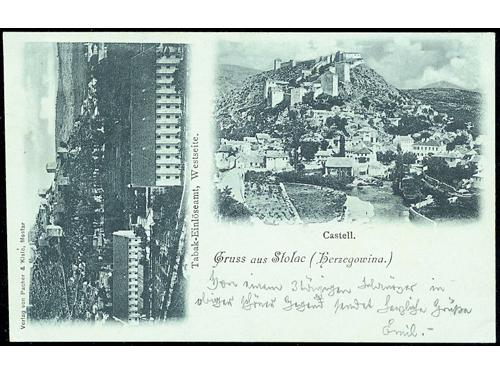 Castell.
Gruss aus Stolac (Herzegowina.)
Von einem 3tägigen
obiger schöner Gegend sendet herzliche Grüße
Emil.-
Tabak-Einlöseamt, Westseite.
Verlag von Pacher & Kisić, Mostar